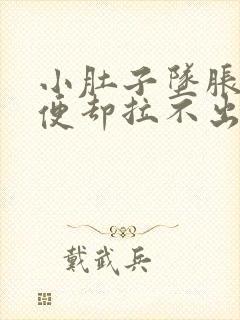 小肚子墜脹
便却拉不出
戴武兵